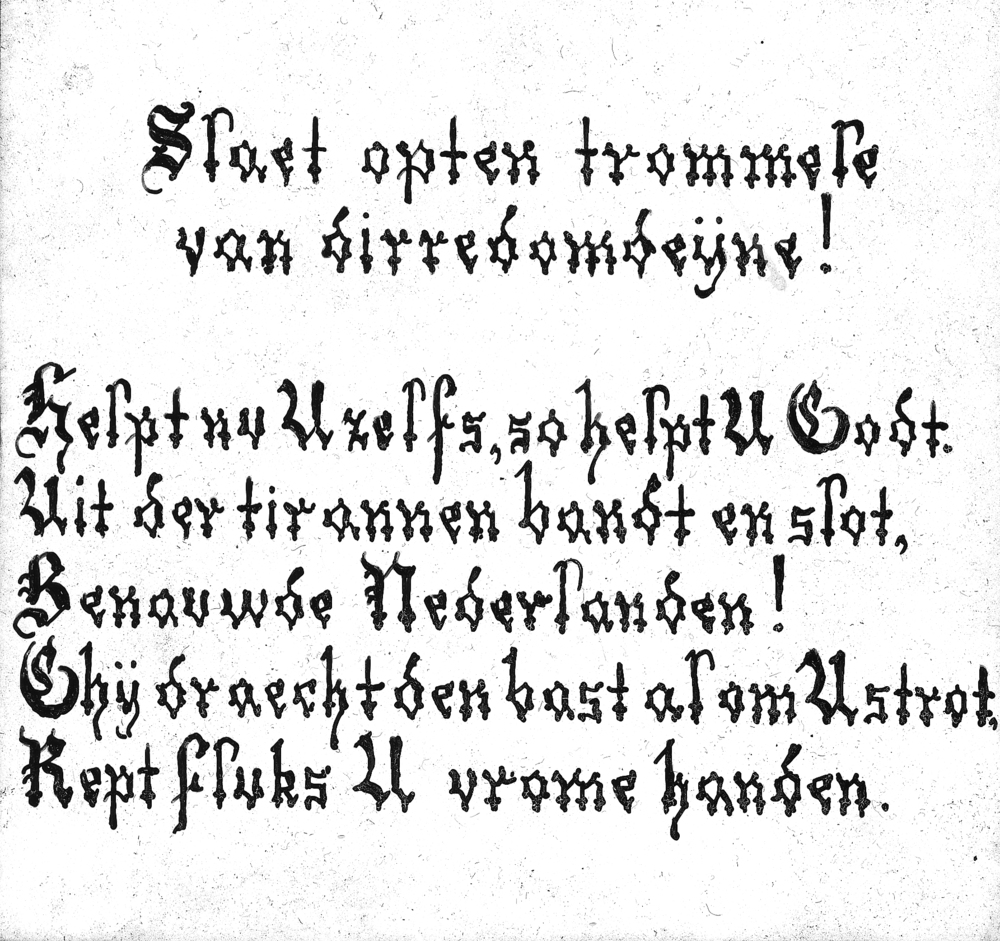 Slaet opten trommele
van dirredomdeÿne!
Helpt nu U zelfs, so helpt U Godt.
Uit der tirannen bandt en slot,
Benauwde Nederlanden!
Ghÿ draecht den bast al om U strot,
Rept fluks U vrome handen.